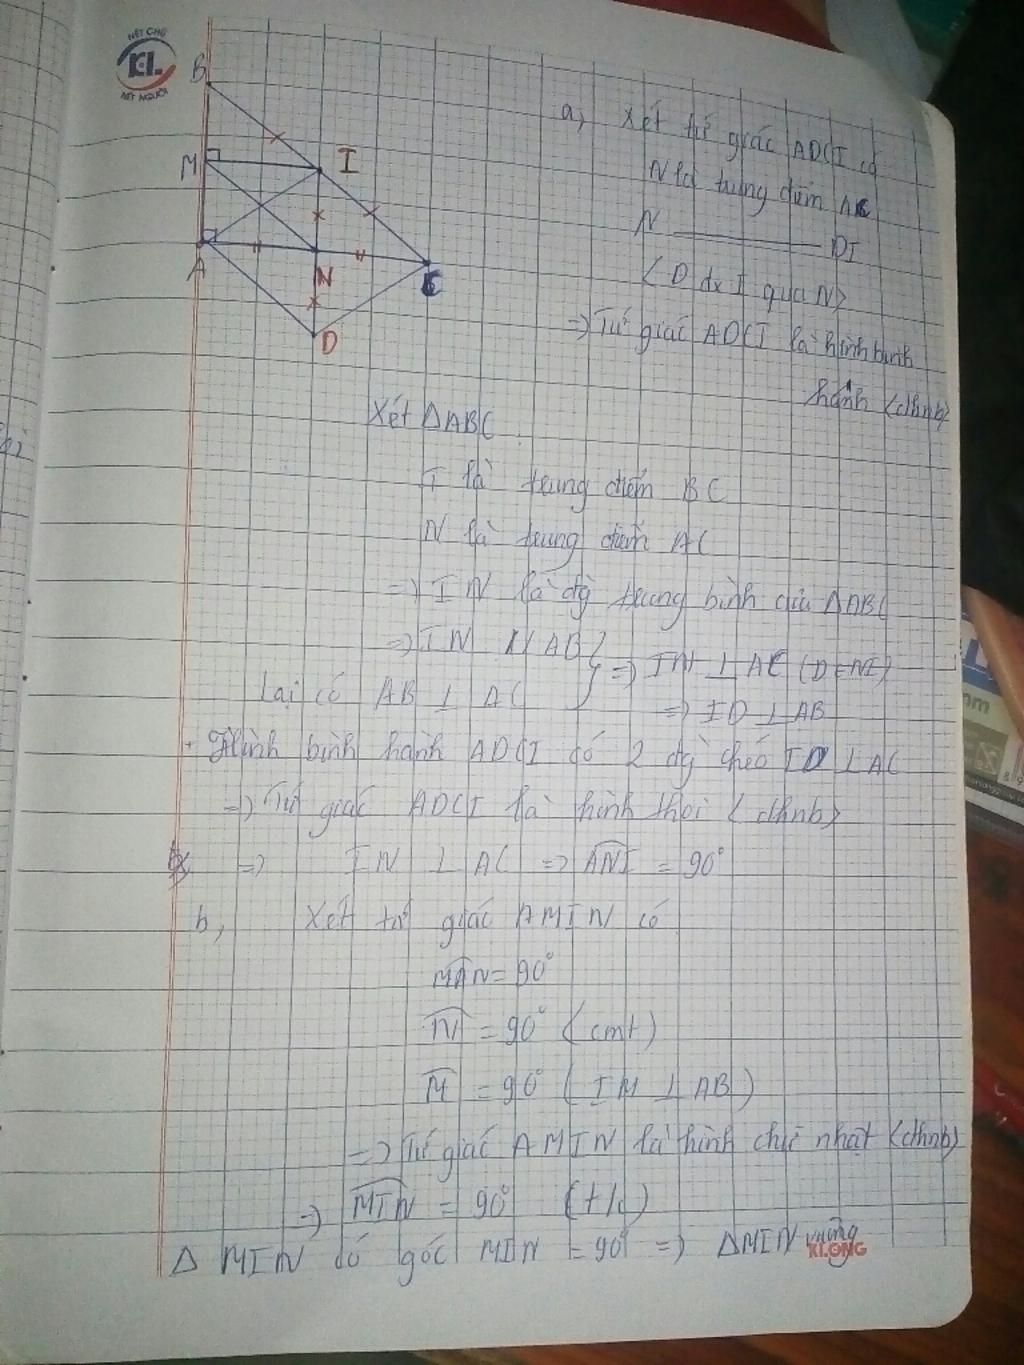 NÉT CHỮ
KL
NẾT NGƯỜI
B
M
I
A
N
C
D
a, Xét tứ giác ADCI có
N là trung điểm AC
N ——— DI
(D đx I qua N)
=> Tứ giác ADCI là hình bình
hành (dhnb)
Xét ΔABC
I là trung điểm BC
N là trung điểm AC
=> IN là đg trung bình của ΔABC
=> IN // AB } => IN ⊥ AC (D ∈ NI)
Lại có AB ⊥ AC
=> ID ⊥ AB
- Hình bình hành ADCI có 2 đg chéo ID ⊥ AC
=> Tứ giác ADCI là hình thoi (dhnb)
=> IN ⊥ AC => ANI = 90°
b, Xét tứ giác AMIN có
MAN = 90°
N = 90° (cmt)
M = 90° (IM ⊥ AB)
=> Tứ giác AMIN là hình chữ nhật (dhnb)
=> MIN = 90° (t/c)
Δ MIN có góc MIN = 90° => ΔMIN vuông
KLONG